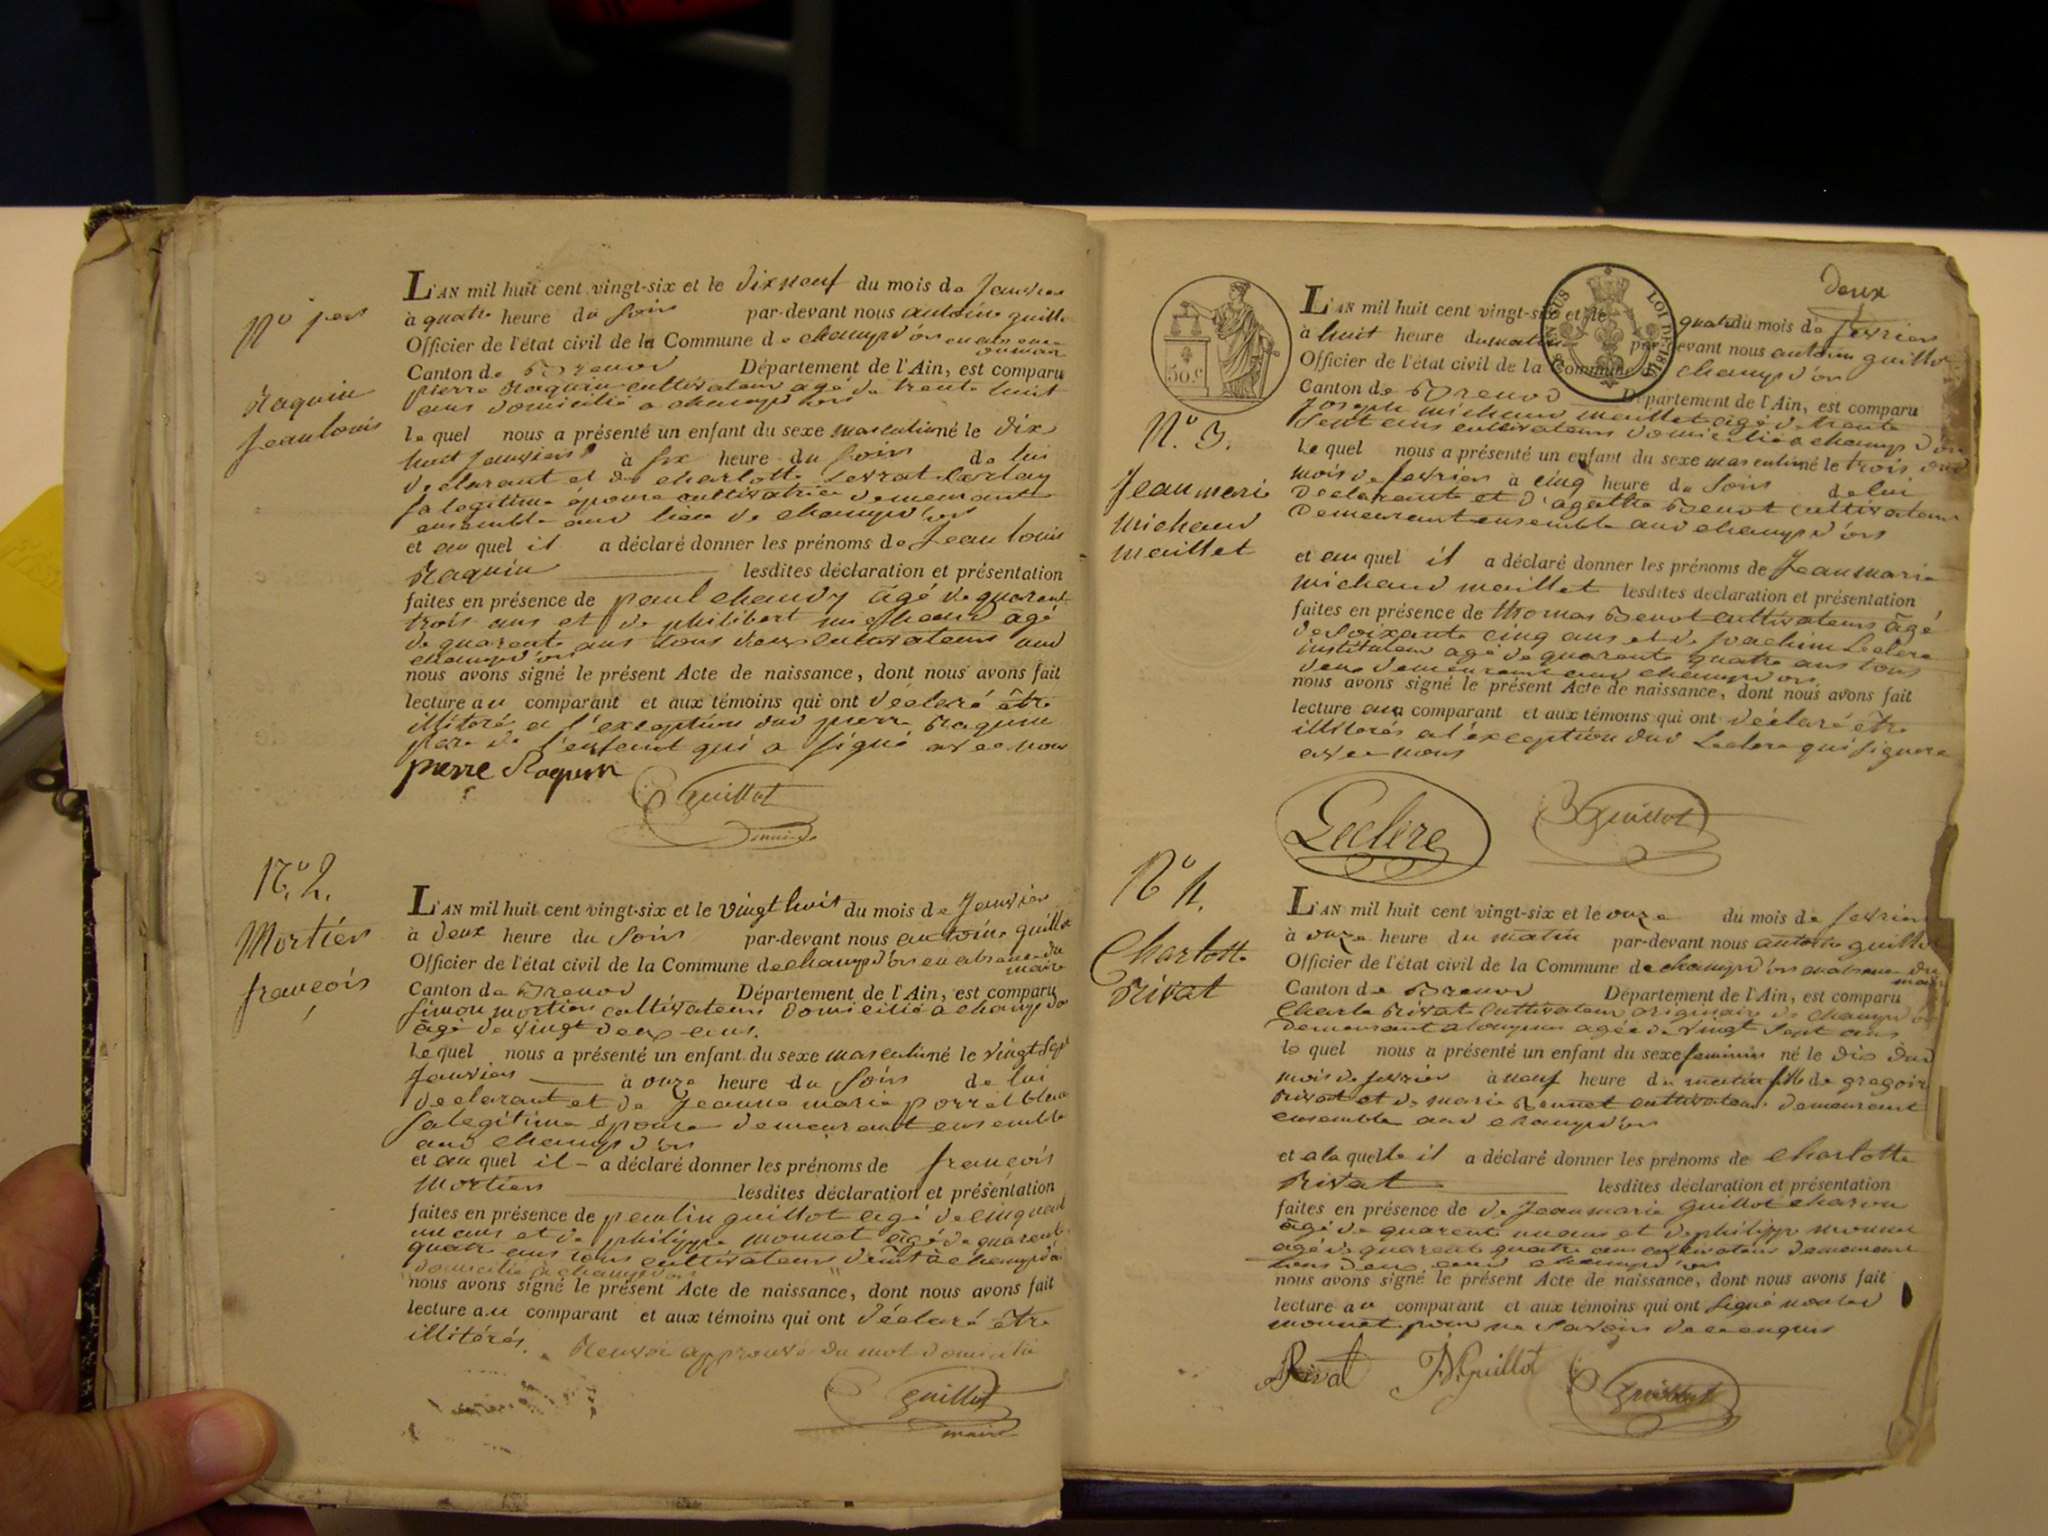 N.o 1er
Raquin
Jean louis
L'AN mil huit cent vingt-six et le dix neuf du mois de Janvier
à quatre heure du soir par-devant nous antoine guillot
Officier de l'état civil de la Commune de champd'or en absence
du maire
Canton de Brenod Département de l'Ain, est comparu
pierre Raquin cultivateur agé de trente huit
ans domicilié a champdor
le quel nous a présenté un enfant du sexe masculin né le dix
huit Janvier à six heure du soir de lui
declarant et de charlotte
sa legitime épouse cultivatrice demeurant
ensemble aud lieu de champd'or
et au quel il a déclaré donner les prénoms de Jean louis
Raquin lesdites déclaration et présentation
faites en présence de paul chaudy agé de quarante
trois ans et de philibert michaud agé
de quarante ans tous deux cultivateurs aud
champd'or
nous avons signé le présent Acte de naissance, dont nous avons fait
lecture au comparant et aux témoins qui ont déclaré être
illitérés a l'exception dud pierre Raquin
père de l'enfant qui a signé avec nous
pierre Raquin
Guillot
N.o 2.
Mortier
françois
L'AN mil huit cent vingt-six et le vingt huit du mois de Janvier
à deux heure du soir par-devant nous antoine guillot
Officier de l'état civil de la Commune de champd'or en absence du
maire
Canton de Brenod Département de l'Ain, est comparu
simon mortier cultivateur domicilié à champdor
âgé de vingt deux ans.
le quel nous a présenté un enfant du sexe masculin né le vingt sept
Janvier à onze heure du soir de lui
declarant et de Jeanne marie
sa legitime épouse demeurant ensemble
aud champd'or
et au quel il a déclaré donner les prénoms de françois
Mortier lesdites déclaration et présentation
faites en présence de paulin guillot agé de cinquante
un ans et de philippe monnet agé de quarante
quatre ans tous cultivateurs à champdor
nous avons signé le présent Acte de naissance, dont nous avons fait
lecture au comparant et aux témoins qui ont déclaré être
illitérés. approuvé du mot
Guillot
maire
deux
50.c
LOI DE 1816
N.o 3.
Jean marie
michaud
maillet
L'AN mil huit cent vingt-six et le quatre du mois de fevrier
à huit heure du matin par-devant nous antoine guillot
Officier de l'état civil de la Commune champd'or
Canton de Brenod Département de l'Ain, est comparu
Joseph michaud maillet agé de trente
sept ans cultivateur domicilié a champd'or
le quel nous a présenté un enfant du sexe masculin né le trois dud
mois de fevrier à cinq heure du soir de lui
declarante et d'agathe Benot cultivateur
demeurant ensemble aud champd'or
et au quel il a déclaré donner les prénoms de Jean marie
michaud maillet lesdites déclaration et présentation
faites en présence de thomas Benot cultivateur âgé
de soixante cinq ans et de Joachim Leclere
instituteur agé de quarante quatre ans tous
deux demeurant aud champdor
nous avons signé le présent Acte de naissance, dont nous avons fait
lecture au comparant et aux témoins qui ont déclaré être
illitérés a l'exception dud Leclere qui signera
avec nous
Leclère
Guillot
N.o 4.
Charlotte
Rivat
L'AN mil huit cent vingt-six et le onze du mois de fevrier
à onze heure du matin par-devant nous antoine guillot
Officier de l'état civil de la Commune de champd'or en absence du
maire
Canton de Brenod Département de l'Ain, est comparu
Charle Rivat cultivateur originaire de champdor
demeurant a agé de vingt sept ans
le quel nous a présenté un enfant du sexe feminin né le dix dud
mois de fevrier à neuf heure du matin fille de gregoire
Rivat et de marie Bennet cultivateur demeurant
ensemble aud champd'or
et a la quelle il a déclaré donner les prénoms de charlotte
Rivat lesdites déclaration et présentation
faites en présence de de Jean marie guillot
âgé de quarente un ans et de philippe monnet
agé de quarente quatre ans cultivateur demeurant
tous deux aud champd'or
nous avons signé le présent Acte de naissance, dont nous avons fait
lecture au comparant et aux témoins qui ont signé
monnet pour ne savoir de ce enquis
Rival
JM guillot
Guillot